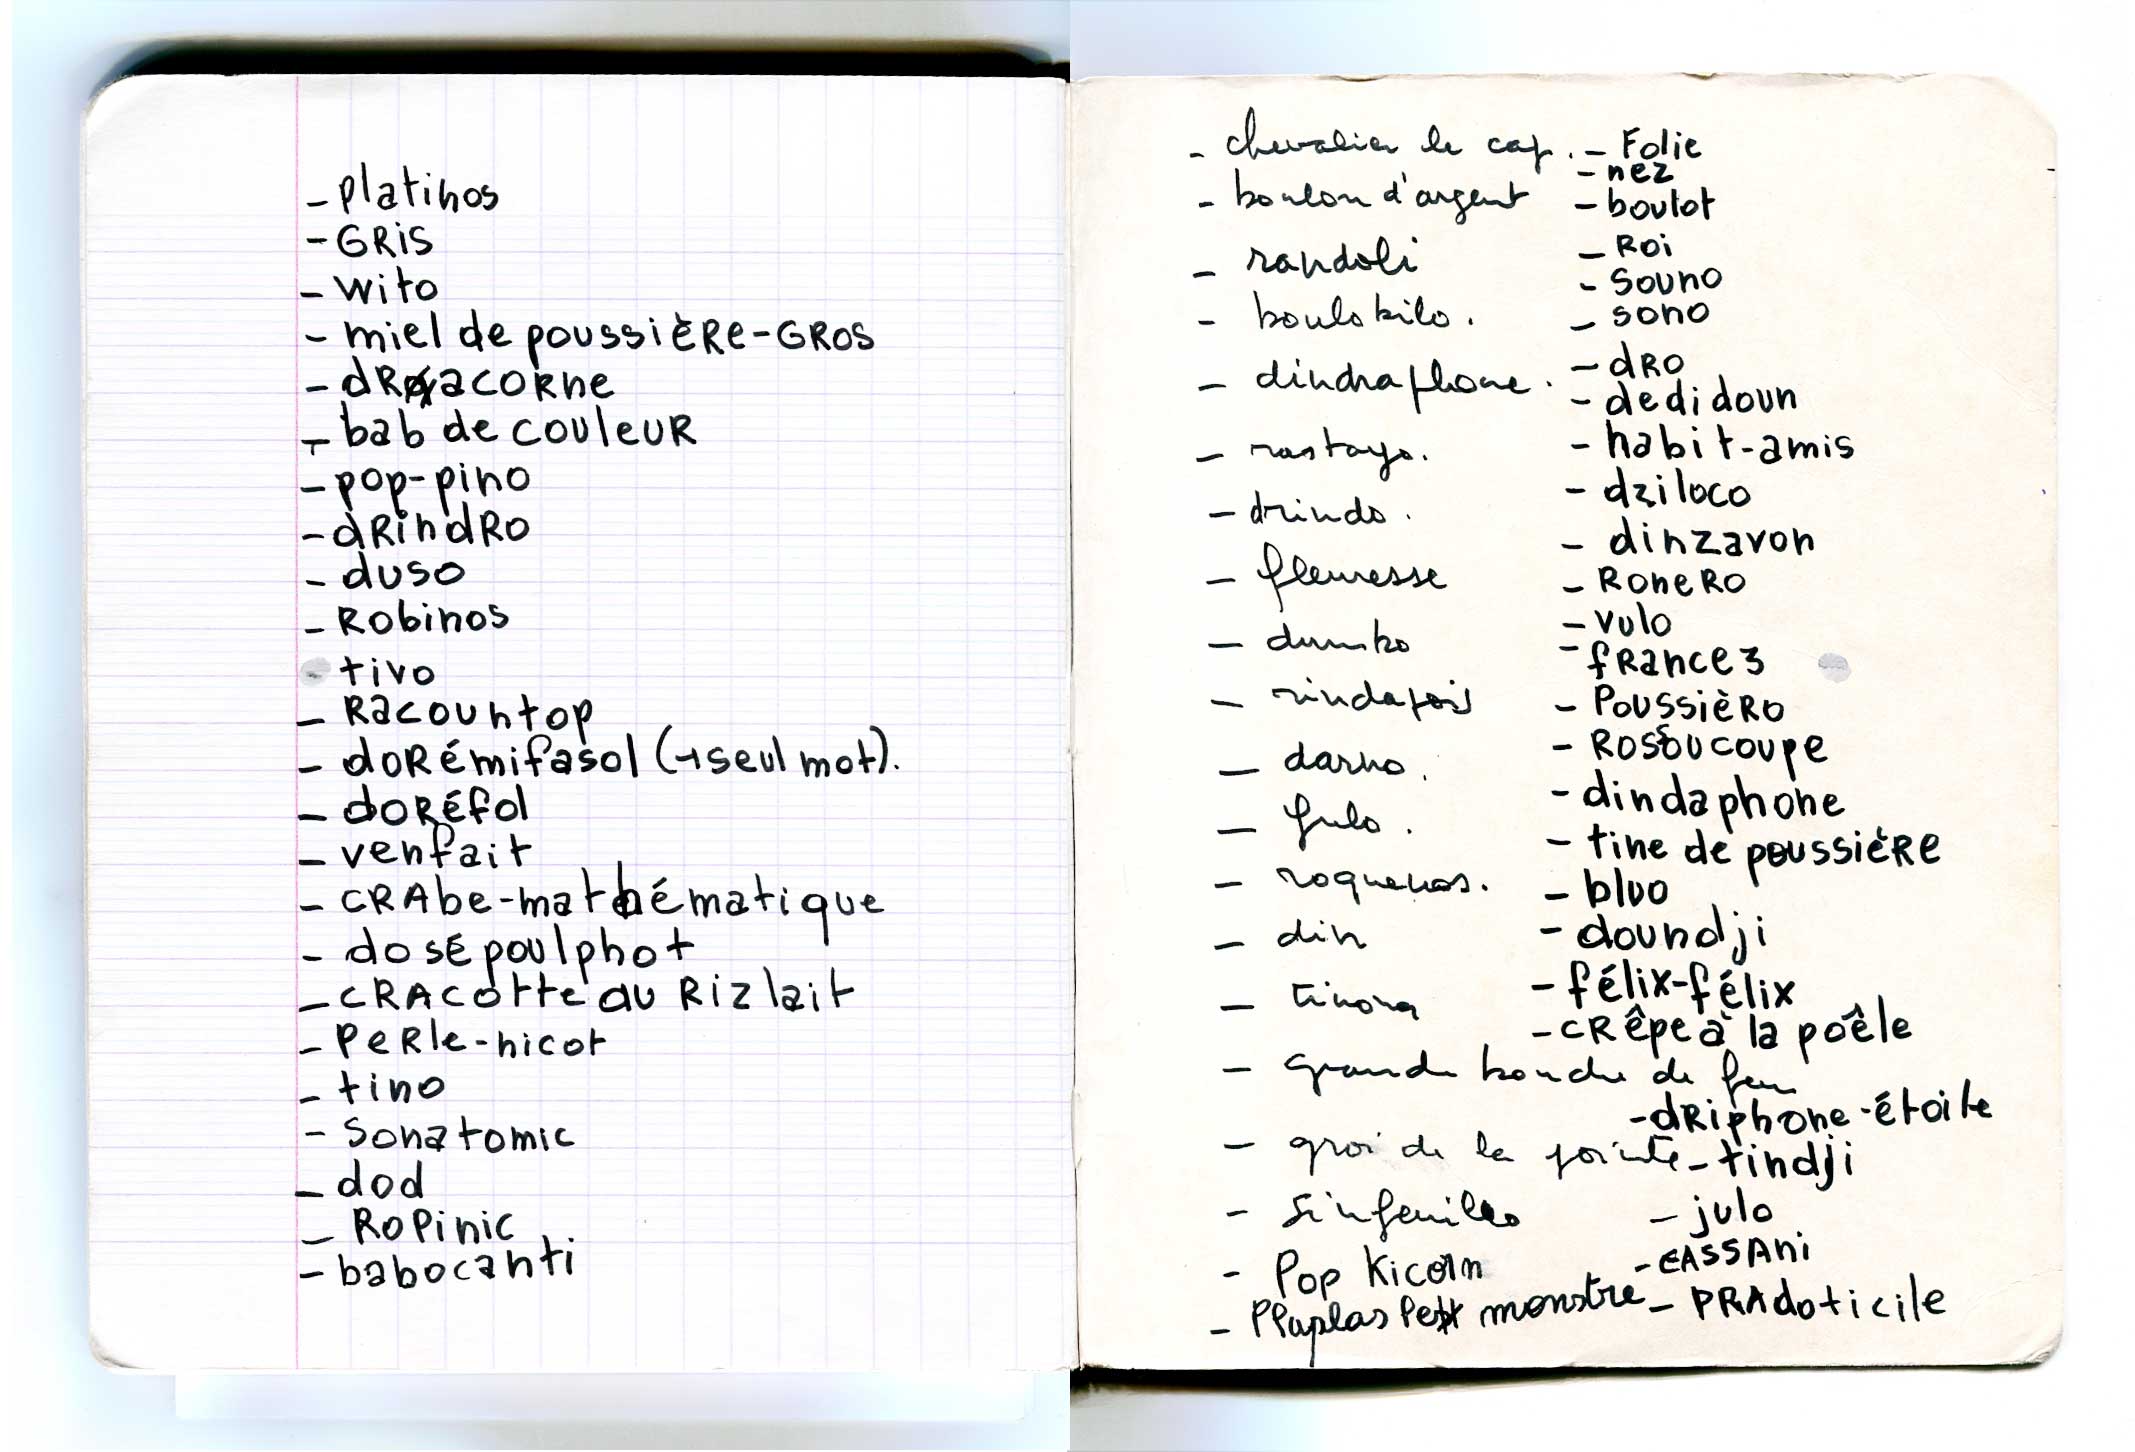 - platinos
- GRis
- wito
- miel de poussièRe-GROS
- dRacorne
- bab de couleuR
- pop-pino
- dRindRo
- duso
- Robinos
- tivo
- Racountop
- doRémifasol (1 seul mot).
- doRéfol
- venfait
- CRAbe-mathématique
- dosépoulphot
- CRACotte au Riz lait
- PeRle-nicot
- tino
- Sonatomic
- dod
- RoPinic
- babocanti
- chevalier le cap.
- boulon d'argent
- randoli
- boulokilo.
- dindraphone.
- rastayo.
- drindo.
- fleuresse
- dumko
- rindapois
- darno.
- fulo.
- roquenos.
- din
- tinona
- grande bouche de feu
- groi de la pointe
- Sinfeuilles
- Pop Kicorn
- Petit monstre
- Folie
- nez
- boulot
- Roi
- Souno
- sono
- dRo
- dedidoun
- habit-amis
- dziloco
- dinzavon
- RoneRo
- vulo
- fRance3
- PoussièRo
- Rossoucoupe
- dindaphone
- tine de poussièRe
- bluo
- doundji
- félix-félix
- CRêpe à la poêle
- dRiphone-étoile
- tindji
- julo
- CASSAni
- PRAdoticile